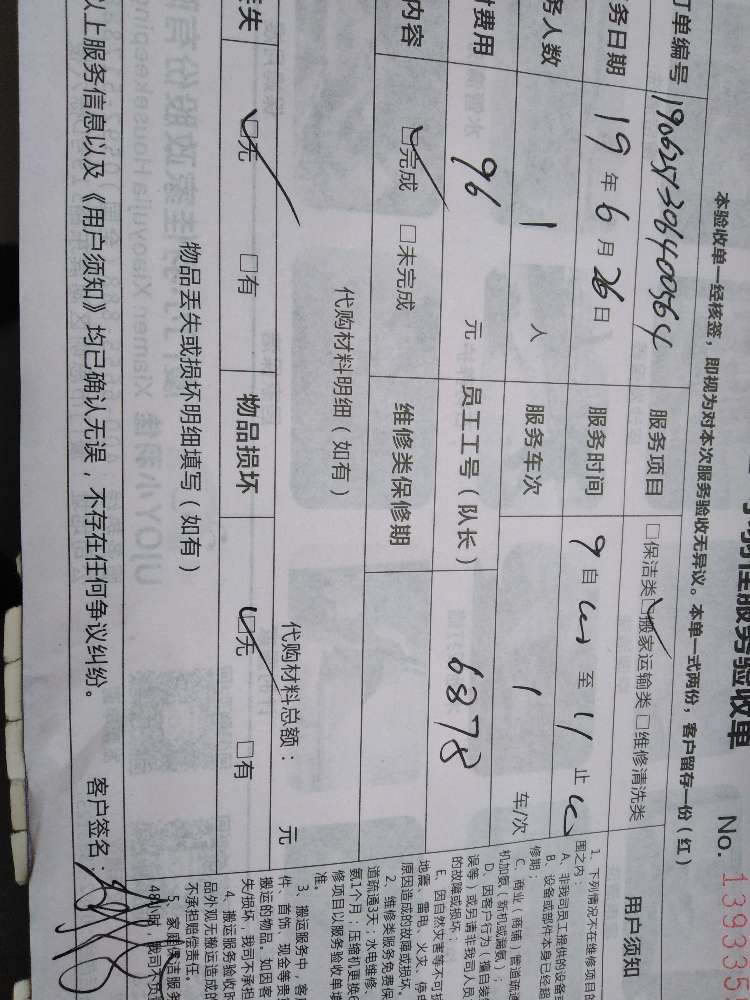 服务验收单
No. 139335
本验收单一经核签，即视为对本次服务验收无异议。本单一式两份，客户留存一份（红）
订单编号 服务项目 □保洁类 ☑搬家运输类 □维修清洗类
务日期 19 年 6 月 26 日 服务时间 9 自 至 11 止
务人数 1 人 服务车次 1 车/次
费用 96 元 员工工号（队长） 6878
内容 ☑完成 □未完成 维修类保修期
代购材料明细（如有） 代购材料总额： 元
丢失 ☑无 □有 物品损坏 ☑无 □有
物品丢失或损坏明细填写（如有）
以上服务信息以及《用户须知》均已确认无误，不存在任何争议纠纷。 客户签名：
用户须知
1、下列情况不在维修项目的
围之内：
A、非我司员工提供的设备或
B、设备或部件本身已经超
修期；
C、商业（商铺）管道疏通
机加氨（新机或漏氨）；
D、因客户行为（擅自装
误等）或另请非我司人员
的故障或损坏；
E、因自然灾害等不可抗
地震、雷电、火灾、停电
原因造成的故障或损坏。
2、维修类服务免费保
道疏通3天；水电维修、
氨1个月；压缩机更换6
修项目以服务验收单填
准。
3、搬运服务中，客
件、首饰、现金等贵
搬运的物品。如因客
失损坏，我司不承担
4、搬运服务验收时
品外观无搬运造成的
不承担赔偿责任。
5、家庭保洁服务
48小时，我司不负责